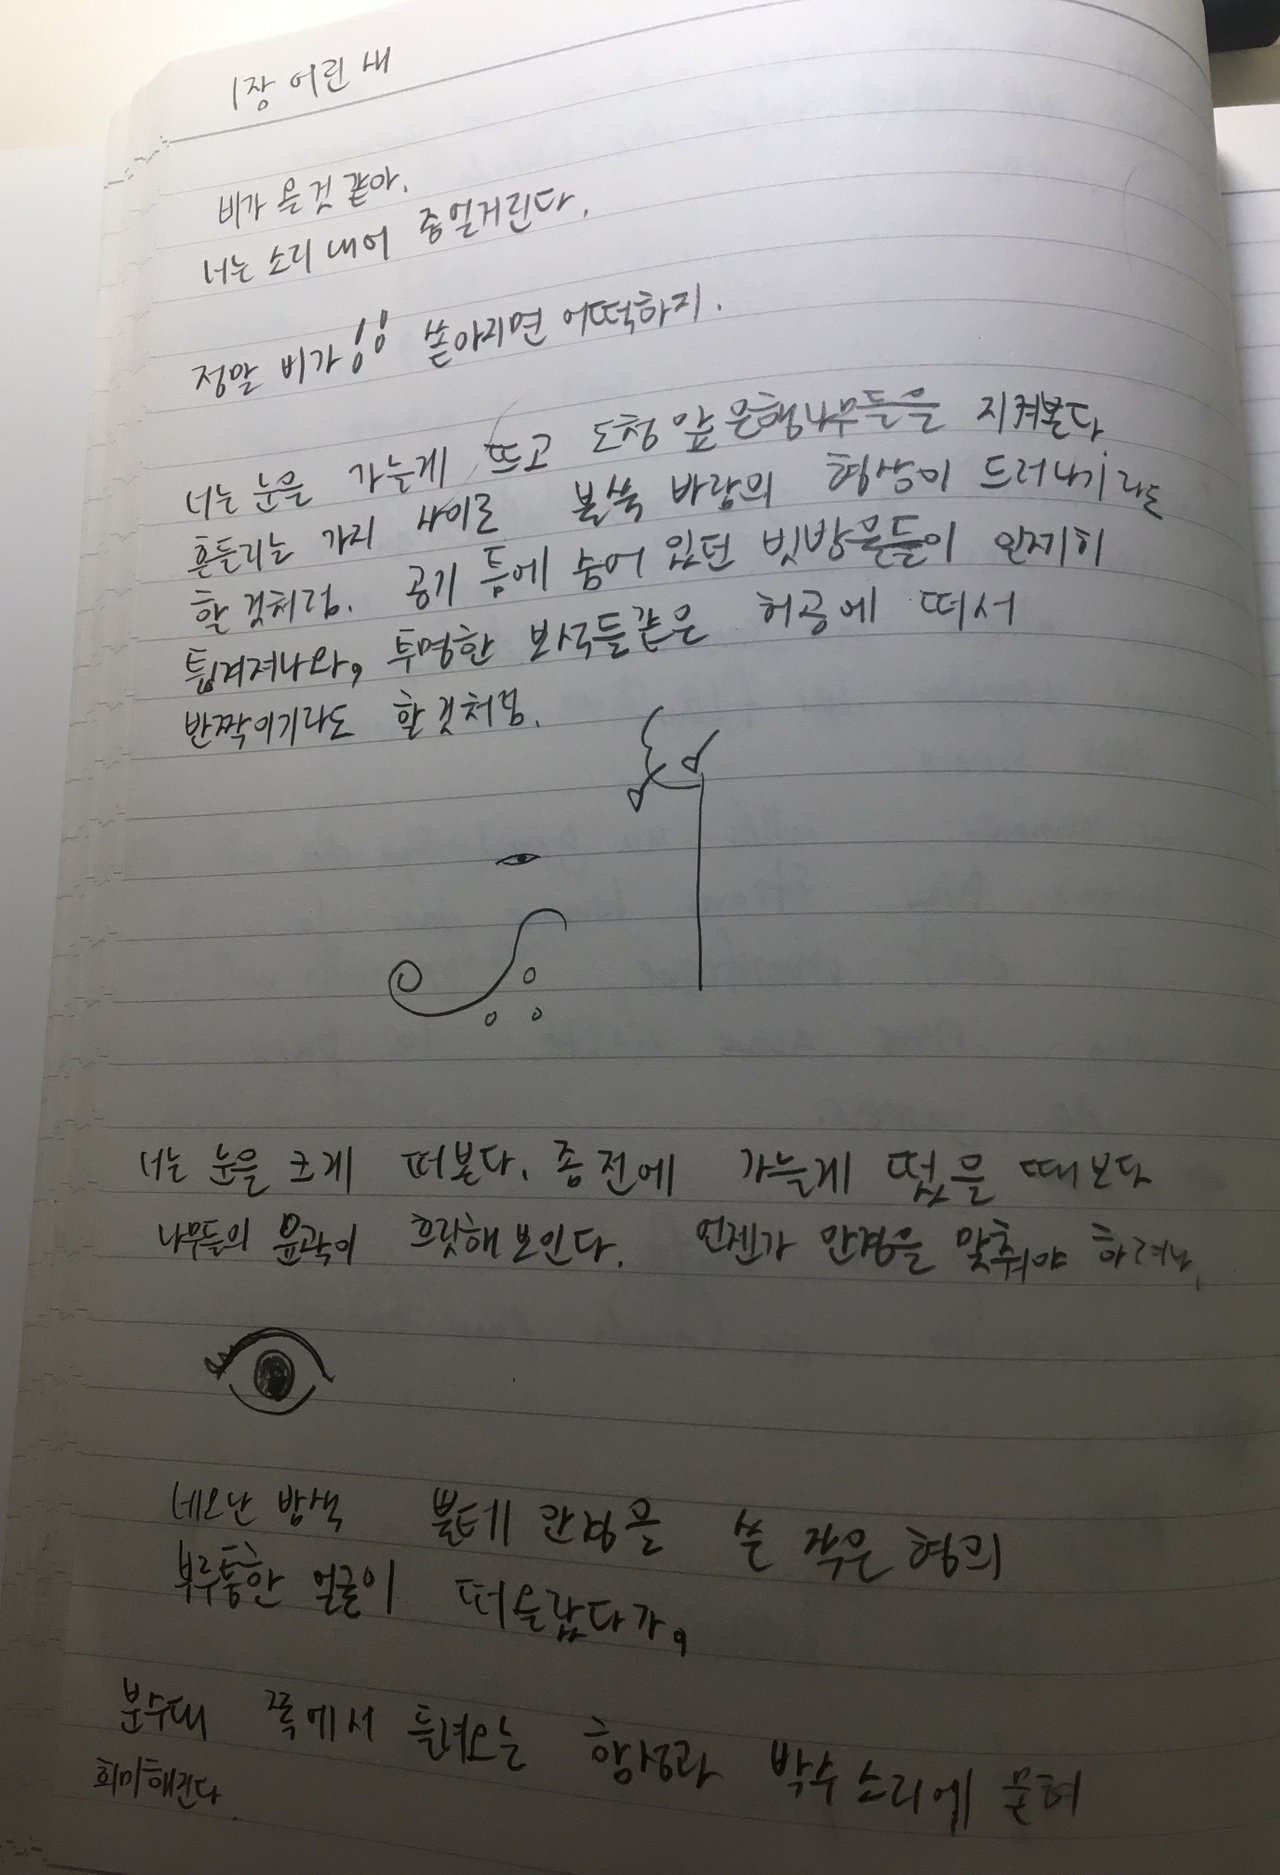 1장 어린 새
비가 올것 같아.
너는 소리 내어 중얼거린다.
정말 비가 쏟아지면 어떡하지.
너는 눈을 가늘게 뜨고 도청 앞 은행나무들을 지켜본다
흔들리는 가지 사이로 불쑥 바람의 형상이 드러나기라도
할 것처럼. 공기 틈에 숨어 있던 빗방울들이 일제히
튕겨져나와, 투명한 보석들같은 허공에 떠서
반짝이기라도 할것처럼.
너는 눈을 크게 떠본다. 좀 전에 가늘게 떴을 때보다
나무들의 윤곽이 흐릿해 보인다. 언젠가 안경을 맞춰야 하려나,
네모난 밤색 뿔테 안경을 쓴 작은 형의
부루퉁한 얼굴이 떠올랐다가,
분수대 쪽에서 들려오는 함성과 박수 소리에 묻혀
희미해진다.